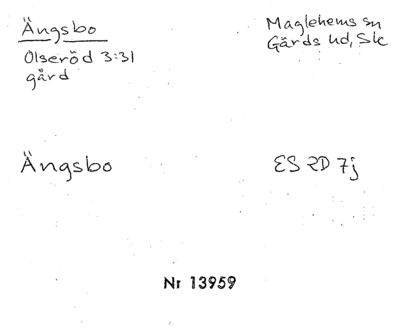 Ängsbo
Olseröd 3:31
gård
Maglehems sn
Gärds hd, Sk
Ängsbo
ES 2D 7j
Nr 13959